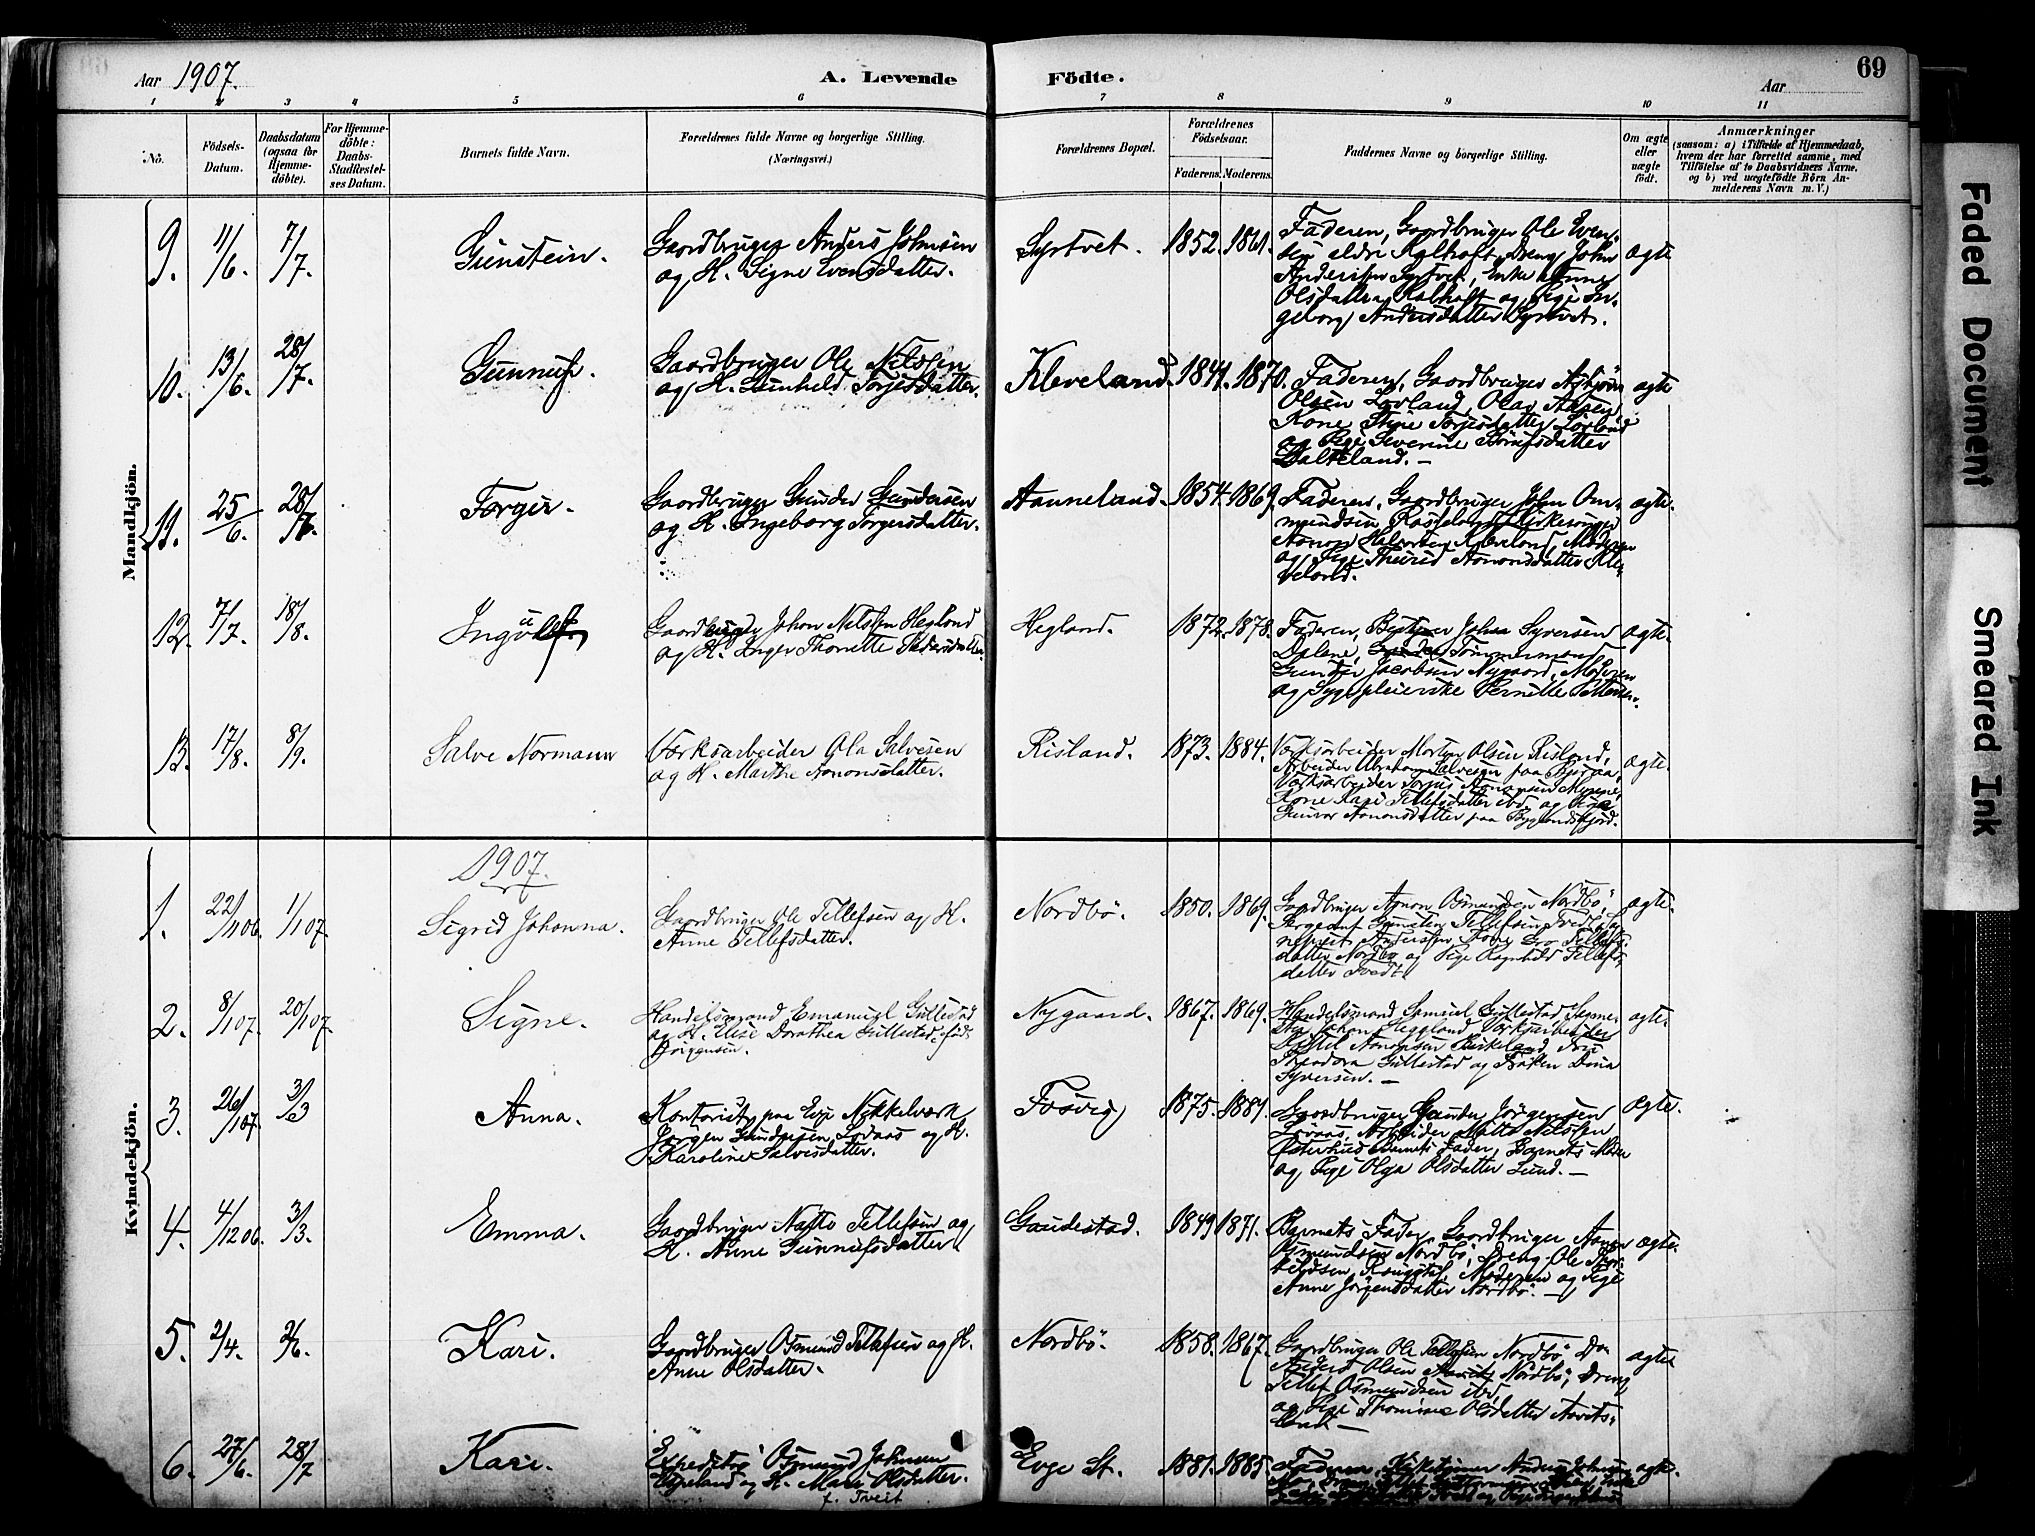 Aar 1907. A. Levende Födte. Aar 69
1 2 3 4 5 6 7 8 9 10 11
No.
Födsels-
Datum.
Daabsdatum
(ogsaa for
Hjemme-
döbte).
For Hjemme-
döbte:
Daabs-
Stadfæstel-
ses Datum.
Barnets fulde Navn.
Forældrenes fulde Navne og borgerlige Stilling.
(Næringsvei.)
Forældrenes Bopæl.
Forældrenes
Födselsaar.
Faderens. Moderens.
Faddernes Navne og borgerlige Stilling.
Om ægte
eller
uægte
födt.
Anmærkninger
(saasom: a) i Tilfælde af Hjemmedaab,
hvem der har forrettet samme, med
Tilföielse af to Daabsvidners Navne,
og b) ved uægtefödte Börn An-
melderens Navn m. V.)
Mandkjön.
9. 11/6. 7/7. Gunstein.
Gaardbruger Anders Johnsen
og H. Signe Evensdatter.
Syrtvet. 1852. 1861.
Faderen, Gaardbruger Ole Even-
sen eldre Kalhoft, Dreng John
Andersen Syrtvet, Enke Anne
Olsdatter Kalhoft og Pige In-
geborg Andersdatter Syrtvet.
ægte
10. 13/6. 28/7. Gunnuf.
Gaardbruger Ole Nilssen
og H. Gunhild Torjusdatter.
Kleveland. 1844. 1870.
Faderen, Gaardbruger Asbjörn
Olsen Lovland, Olav Aasen,
Kone Stine Torjusdatter Lovland
og Pige Severine
ægte
11. 25/6. 28/7. Torger.
Gaardbruger Gunder Gundersen
og H. Ingeborg Torgersdatter.
Aanneland. 1854. 1869.
Faderen, Gaardbruger John Om-
mundsen Kirkesanger
Aanon Halvorsen Kleveland, Moderen
og Pige Thurid Aanonsdatter Kle-
veland.
ægte.
12. 7/7. 18/8. Ingulf
Gaardbruger Johan Nilssen Hegland
og H. Inger Thonette Pedersdatter.
Hegland. 1872. 1878.
Faderen, Johan Syversen
Dalene, Tömmermand
Gunder Jacobsen Nygaard, Moderen
og Sygepleierske Pernille
ægte.
13. 17/8. 8/9. Salve Normann
Værksarbeider Ola Salvesen
og H. Marthe Aanonsdatter.
Risland. 1873. 1884.
Værksarbeider Morten Olsen Risland,
Arbeider Abraham Salvesen paa
Værksarbeider Torjus Aanonsen
Kone Kari Tellefsdatter ibd. og Pige
Gunvor Aanonsdatter paa Byglandsfjord.
ægte.
Kvindekjön.
1907.
1. 22/11 06. 1/1 07. Sigrid Johanna.
Gaardbruger Ole Tellefsen og H.
Anne Tellefsdatter.
Nordbö. 1850. 1869.
Gaardbruger Aanon Osmundsen Nordbö,
Sergeant Gunsten Tellefsen Tveit,
Andersen, Kone Gro Tellefs-
datter Nordbö og Pige Ragnhild Tellefs-
datter Tvedt.
ægte.
2. 8/1 07. 20/1 07. Signe.
Handelsmand Emanuel Gullestad
og H. Elise Dorothea Gullestad, föd
Jörgensen.
Nygaard. 1867. 1869.
Handelsmand Samuel Gullestad,
Johan Heggland, Værksarbeider
Kristel Aanonsen Birkeland, Fru
Theodora Gullestad og Fröken Dina
Syversen.
ægte.
3. 26/1 07. 3/3 Anna.
Kontorist paa Evje Nikkelværk
Jörgen Gundersen Lovaas og H.
Karoline Salvesdatter.
Fosvig 1875. 1884.
Gaardbruger Gunder Jörgensen
Lovaas, Arbeider Matts Nilssen
Österhus, Barnets Fader, Barnets Moder
og Pige Olga Olsdatter Lund.
ægte.
4. 4/12 06. 3/3. Emma.
Gaardbruger Natto Tellefsen og
H. Anne Gunnufsdatter.
Gaudestad. 1849 1871.
Barnets Fader, Gaardbruger Aanon
Osmundsen Nordbö, Dreng Ole
Moderen og Pige
Anne Jörgensdatter Nordbö.
ægte.
5. 2/4. 2/6. Kari.
Gaardbruger Osmund Tellefsen og H.
Anne Olsdatter.
Nordbö. 1858. 1867.
Gaardbruger Ole Tellefsen Nordbö, Do.
Anders Olsen Nordbö, Dreng
Tellef Osmundsen ibd.
og Pige Thomine Olsdatter
ægte.
6. 27/6. 28/7 Kari.
Expeditör Osmund Johnsen
og H. Mari Olsdatter.
f. Tveit
Evje St. 1881. 1885.
Faderen,
ægte.
Faded Document
Smeared Ink